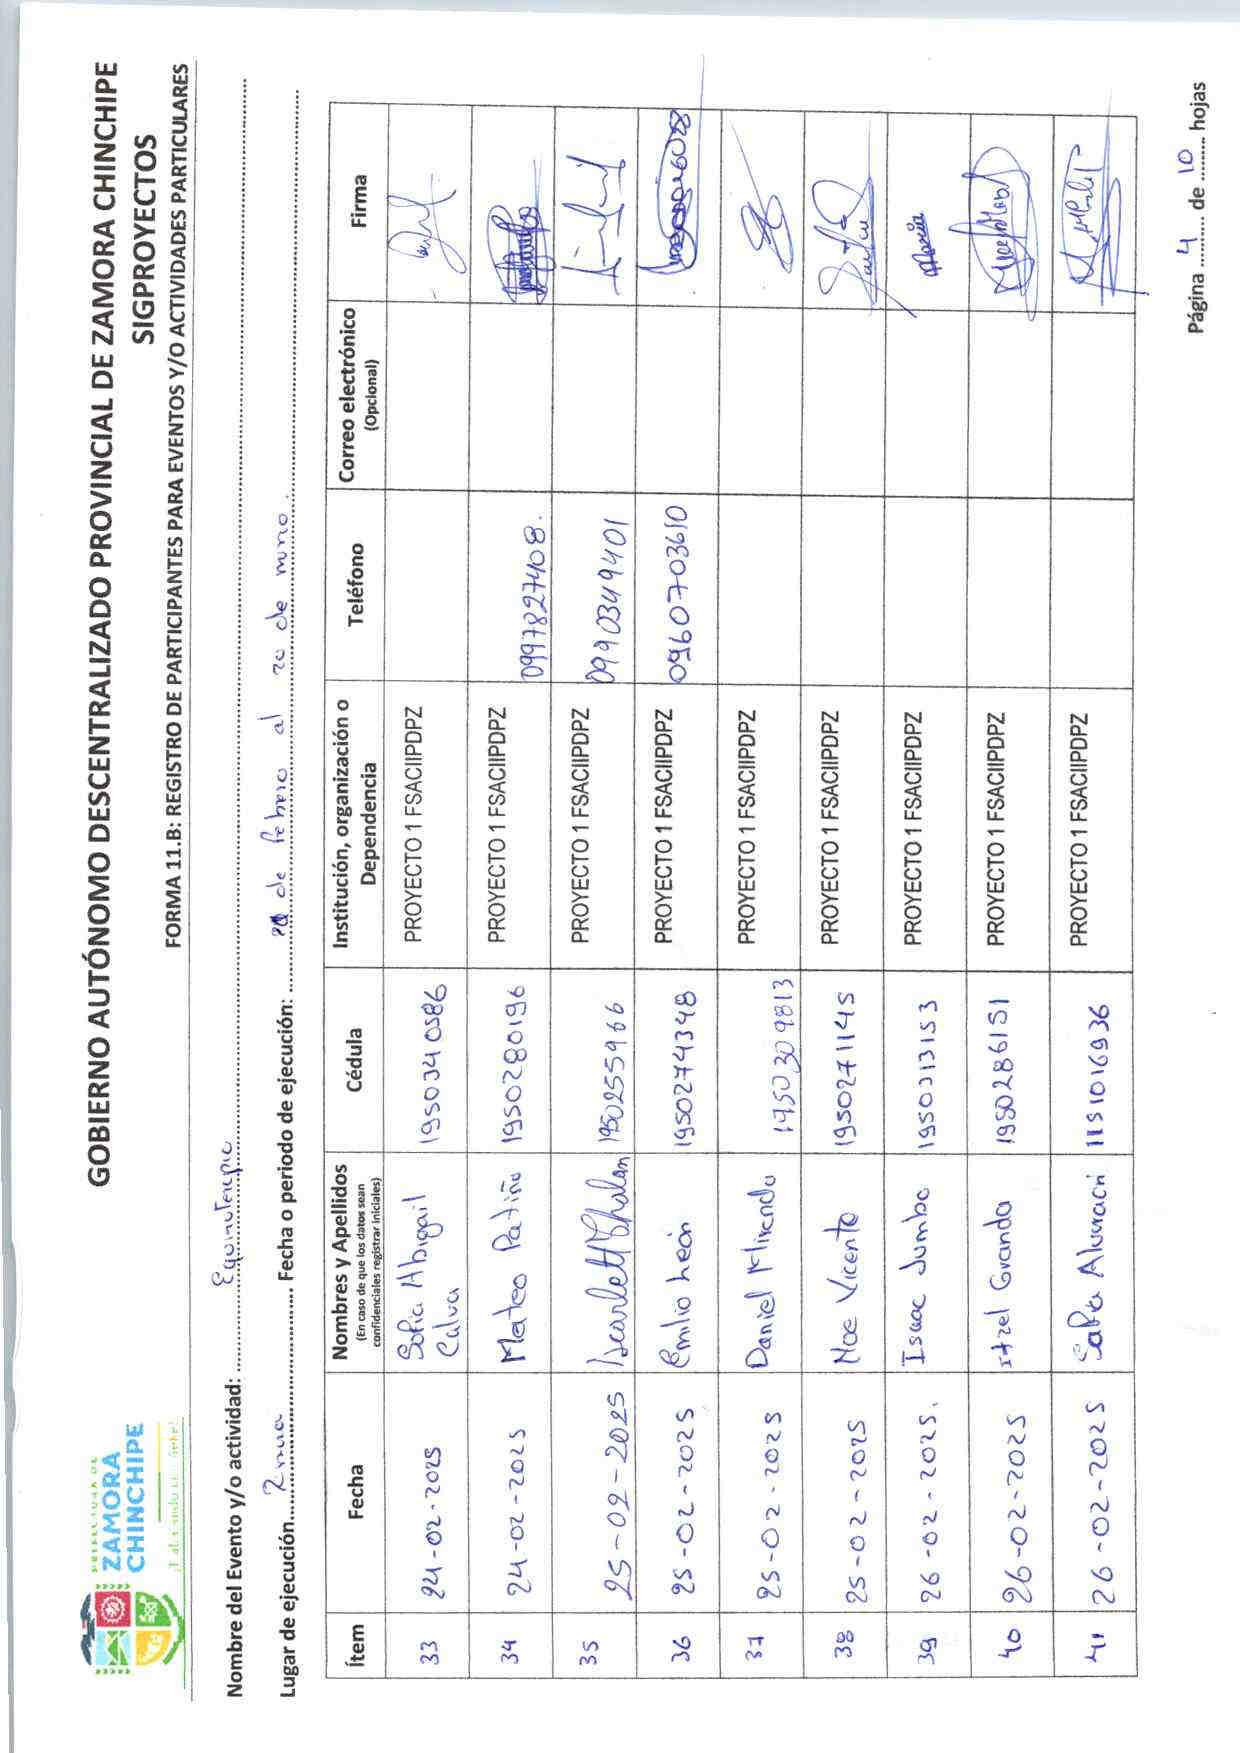 PREFECTURA DE
ZAMORA
CHINCHIPE
GOBIERNO AUTÓNOMO DESCENTRALIZADO PROVINCIAL DE ZAMORA CHINCHIPE
SIGPROYECTOS
FORMA 11.B: REGISTRO DE PARTICIPANTES PARA EVENTOS Y/O ACTIVIDADES PARTICULARES
Nombre del Evento y/o actividad: Equinoterapia
Lugar de ejecución Zamora Fecha o periodo de ejecución: de febrero al 20 de
Ítem Fecha Nombres y Apellidos Cédula Institución, organización o Dependencia Teléfono Correo electrónico Firma
(En caso de que los datos sean confidenciales registrar iniciales) (Opcional)
33 24-02-2025 Sofia Abigail Calva 1950340586 PROYECTO 1 FSACIIPDPZ
34 24-02-2025 Mateo Patiño 1950280196 PROYECTO 1 FSACIIPDPZ 0997827408.
35 25-02-2025 Scarlett Chalan 1950255966 PROYECTO 1 FSACIIPDPZ 0990349401
36 25-02-2025 Emilio León 1950274348 PROYECTO 1 FSACIIPDPZ 0960703610
37 25-02-2025 Daniel Miranda 1950309813 PROYECTO 1 FSACIIPDPZ
38 25-02-2025 Noe Vicente 1950271145 PROYECTO 1 FSACIIPDPZ
39 26-02-2025. Isaac Jumbo 1950313153 PROYECTO 1 FSACIIPDPZ María
40 26-02-2025 Itzel Granda 1950286151 PROYECTO 1 FSACIIPDPZ
41 26-02-2025 1151016936 PROYECTO 1 FSACIIPDPZ
Página 4 de 10 hojas